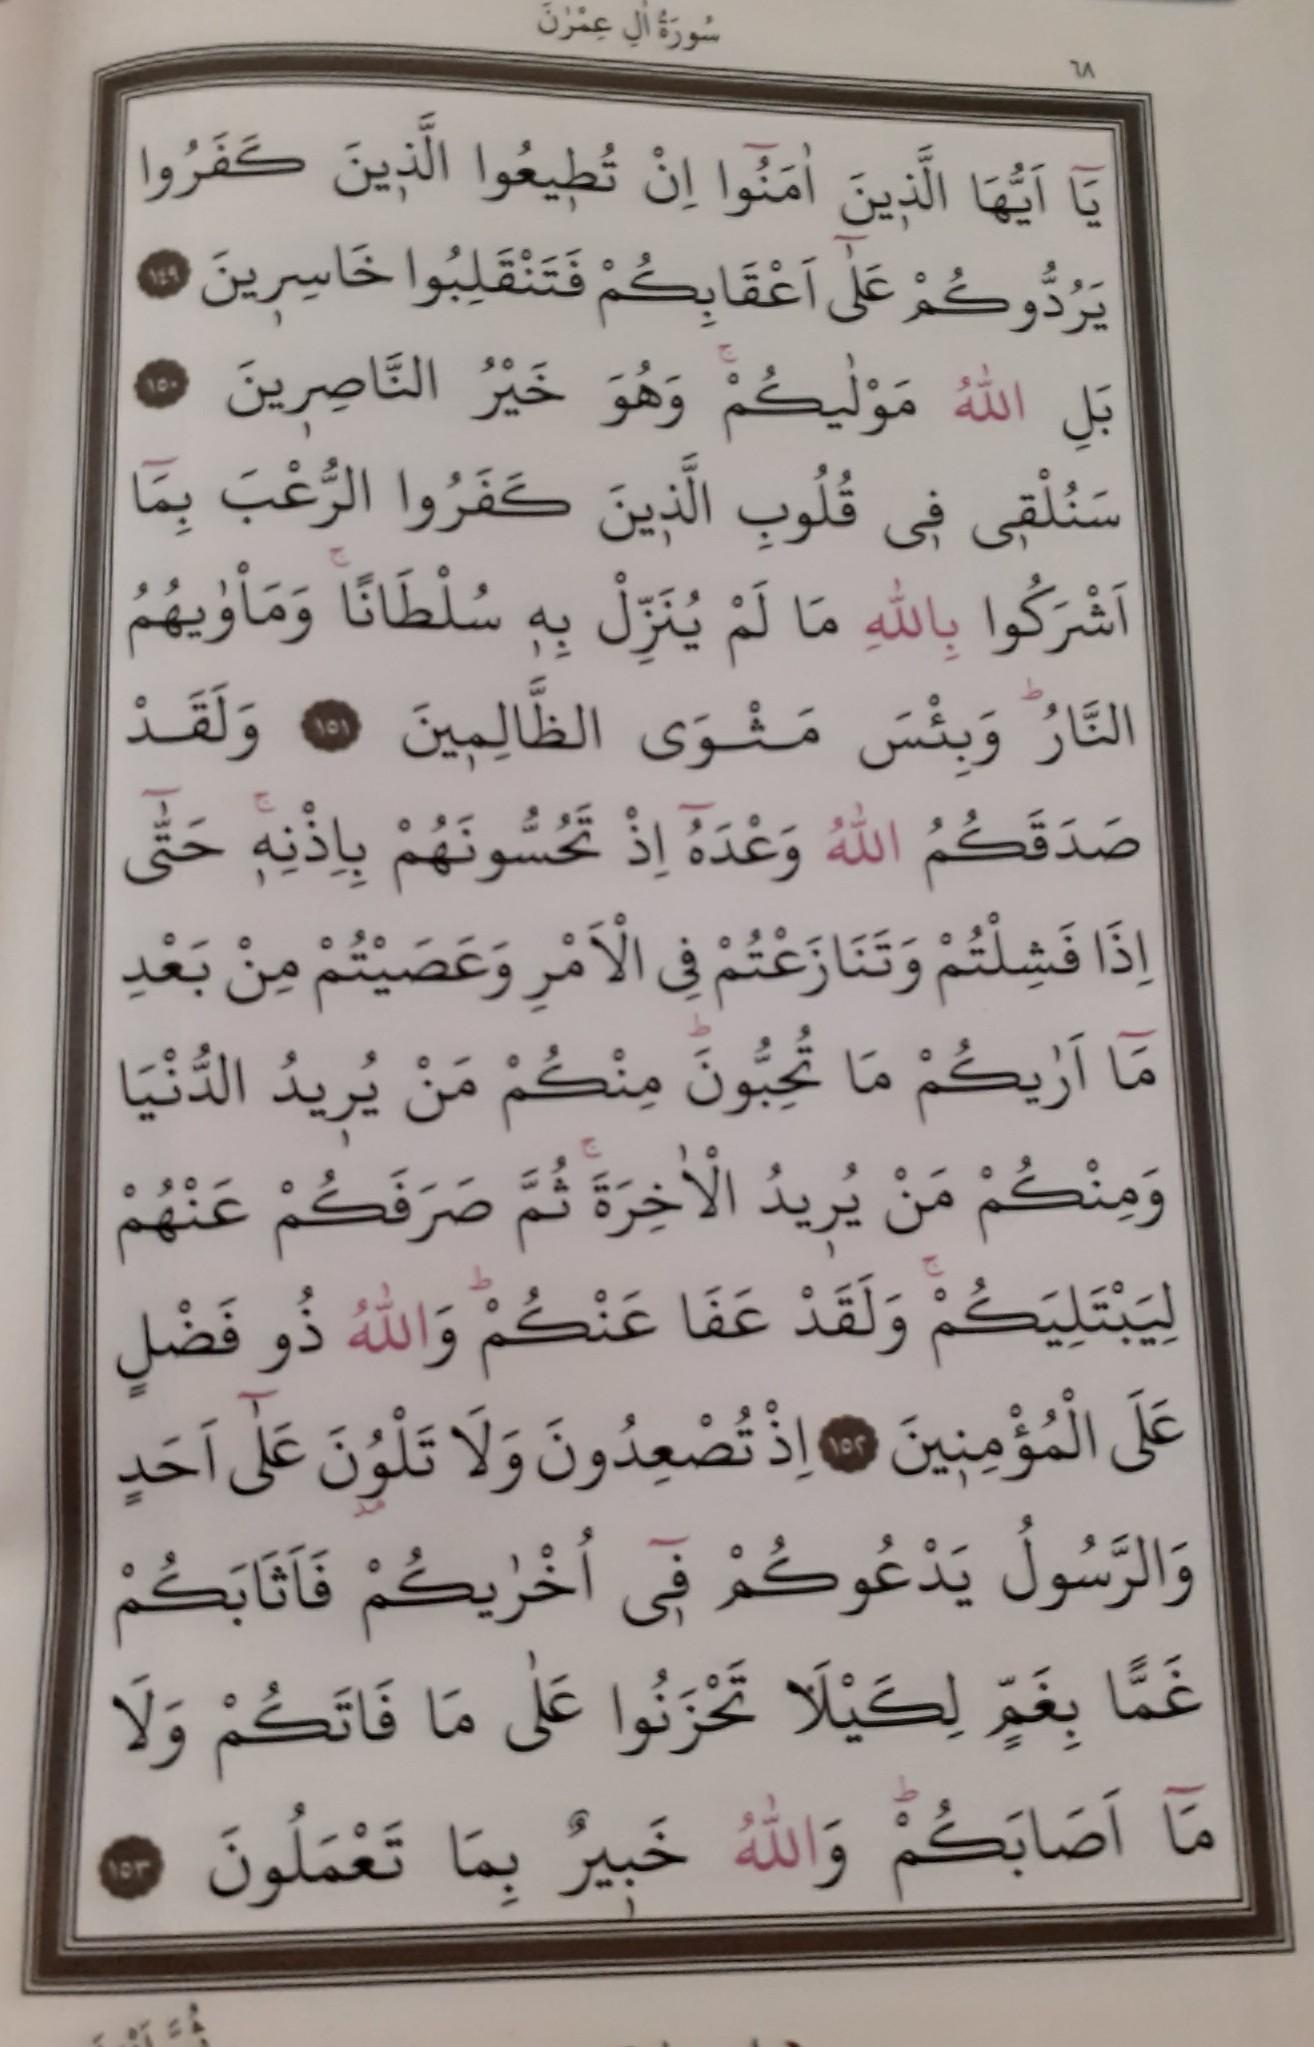 سُورَةُ اٰلِ عِمْرٰنَ
٦٨
يَٓا اَيُّهَا الَّذ۪ينَ اٰمَنُٓوا اِنْ تُط۪يعُوا الَّذ۪ينَ كَفَرُوا
يَرُدُّوكُمْ عَلٰٓى اَعْقَابِكُمْ فَتَنْقَلِبُوا خَاسِر۪ينَ ١٤٩
بَلِ اللّٰهُ مَوْلٰيكُمْۚ وَهُوَ خَيْرُ النَّاصِر۪ينَ ١٥٠
سَنُلْق۪ى ف۪ى قُلُوبِ الَّذ۪ينَ كَفَرُوا الرُّعْبَ بِمَٓا
اَشْرَكُوا بِاللّٰهِ مَا لَمْ يُنَزِّلْ بِه۪ سُلْطَانًاۚ وَمَأْوٰيهُمُ
النَّارُۜ وَبِئْسَ مَثْوَى الظَّالِم۪ينَ ١٥١ وَلَقَدْ
صَدَقَكُمُ اللّٰهُ وَعْدَهُٓ اِذْ تَحُسُّونَهُمْ بِاِذْنِه۪ۚ حَتّٰٓى
اِذَا فَشِلْتُمْ وَتَنَازَعْتُمْ فِى الْاَمْرِ وَعَصَيْتُمْ مِنْ بَعْدِ
مَٓا اَرٰيكُمْ مَا تُحِبُّونَۜ مِنْكُمْ مَنْ يُر۪يدُ الدُّنْيَا
وَمِنْكُمْ مَنْ يُر۪يدُ الْاٰخِرَةَۚ ثُمَّ صَرَفَكُمْ عَنْهُمْ
لِيَبْتَلِيَكُمْۚ وَلَقَدْ عَفَا عَنْكُمْۜ وَاللّٰهُ ذُو فَضْلٍ
عَلَى الْمُؤْمِن۪ينَ ١٥٢ اِذْ تُصْعِدُونَ وَلَا تَلْوُ۫نَ عَلٰٓى اَحَدٍ
وَالرَّسُولُ يَدْعُوكُمْ ف۪ٓى اُخْرٰيكُمْ فَاَثَابَكُمْ
غَمًّا بِغَمٍّ لِكَيْلَا تَحْزَنُوا عَلٰى مَا فَاتَكُمْ وَلَا
مَٓا اَصَابَكُمْۜ وَاللّٰهُ خَب۪يرٌ بِمَا تَعْمَلُونَ ١٥٣